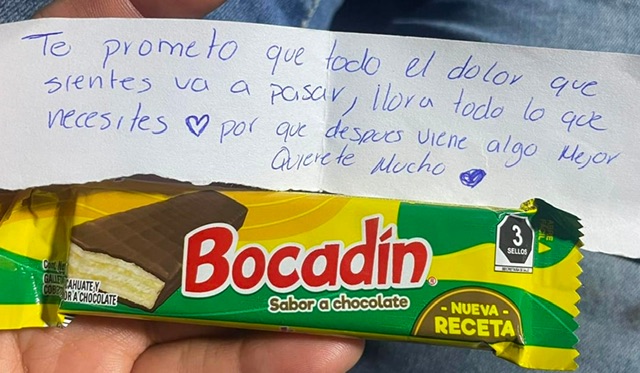 Te prometo que todo el dolor que
sientes va a pasar, llora todo lo que
necesites ♡ por que despues viene algo Mejor
Quierete Mucho
Bocadín
Sabor a chocolate
3
SELLOS
- NUEVA -
RECETA
CAHUATE Y
OR A CHOCOLATE